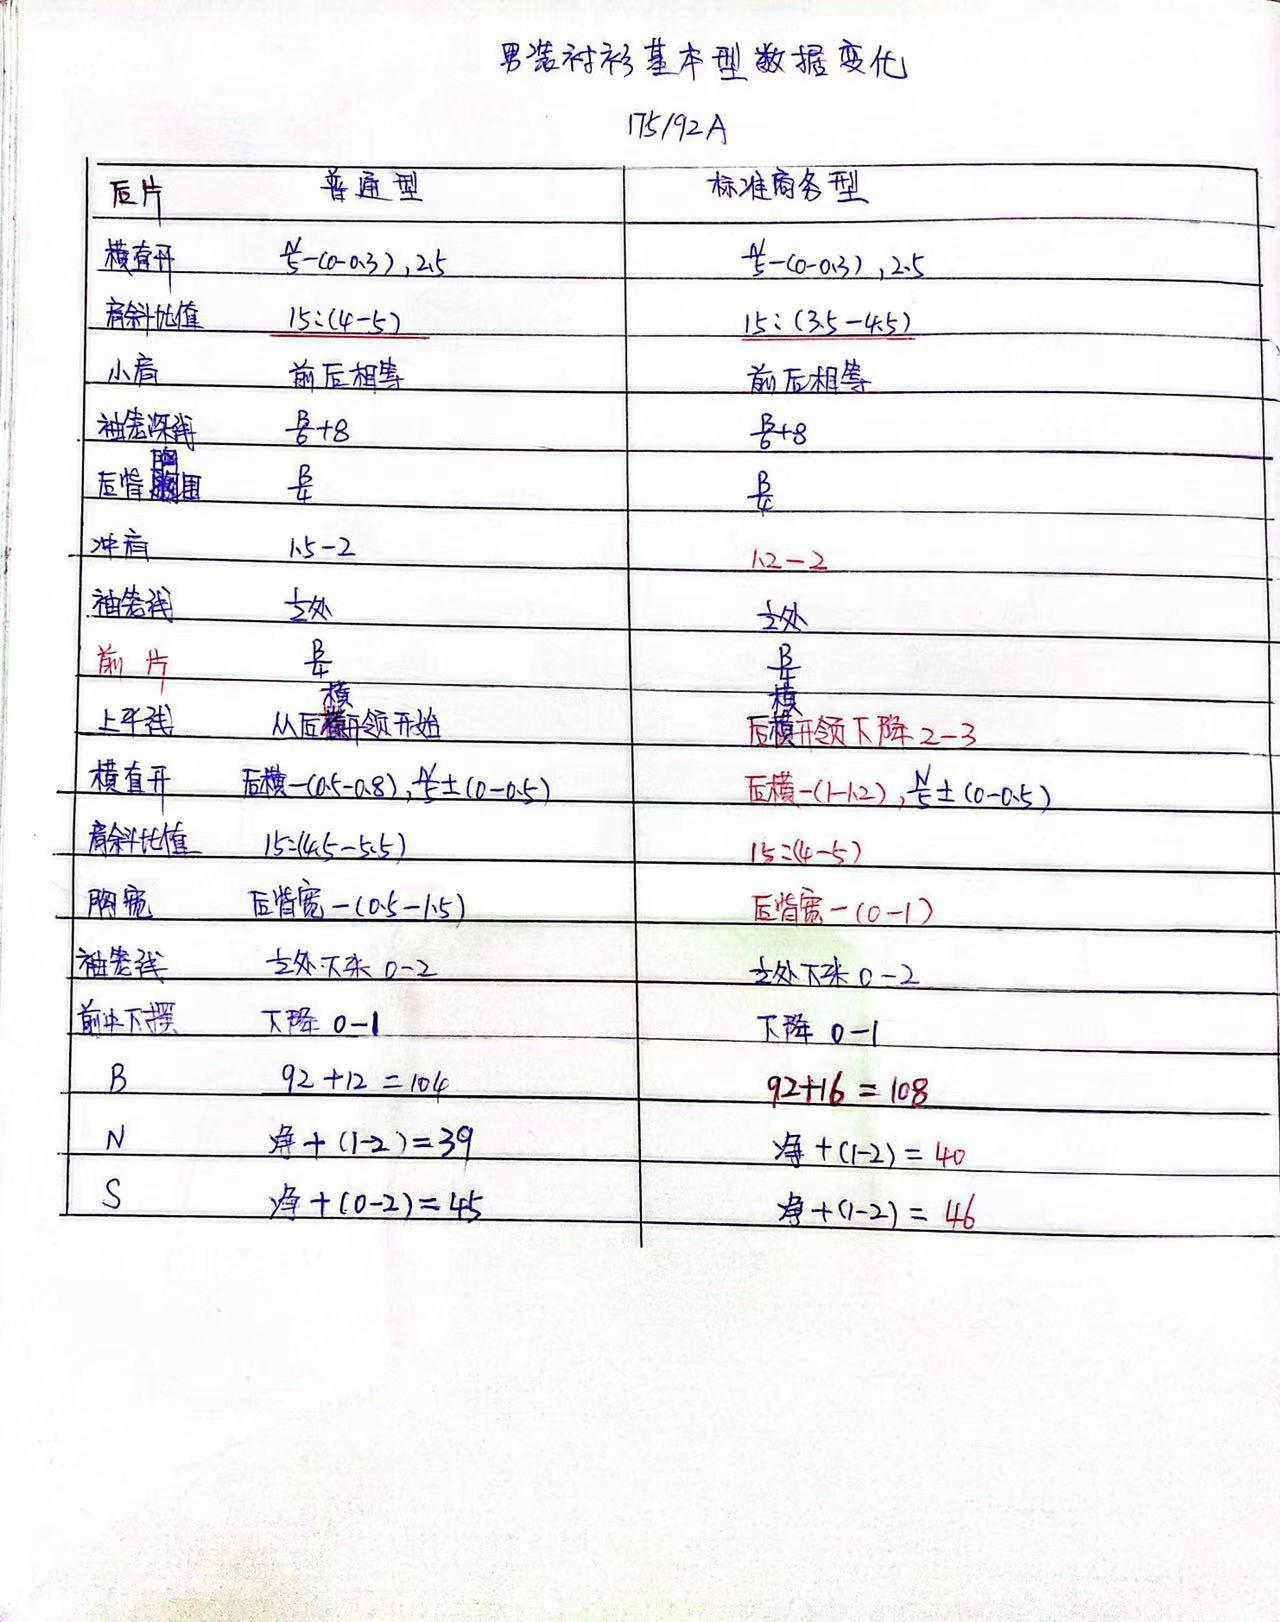 男装衬衫基本型数据变化
175/92A
后片 普通型 标准商务型
横直开 N/5-(0-0.3),2.5 N/5-(0-0.3),2.5
肩斜比值 15:(4-5) 15:(3.5-4.5)
小肩 前后相等 前后相等
袖笼深线 B/6+8 B/6+8
后背胸围 B/4 B/4
冲肩 1.5-2 1.2-2
袖笼线 1/2处 1/2处
前片 B/4 B/4
上平线 从后横开领开始 后横开领下降2-3
横直开 后横-(0.5-0.8),N/5±(0-0.5) 后横-(1-1.2),N/5±(0-0.5)
肩斜比值 15:(4.5-5.5) 15:(4-5)
胸宽 后背宽-(0.5-1.5) 后背宽-(0-1)
袖笼线 1/2处下来0-2 1/2处下来0-2
前中下摆 下降0-1 下降0-1
B 92+12=104 92+16=108
N 净+(1-2)=39 净+(1-2)=40
S 净+(0-2)=45 净+(1-2)=46